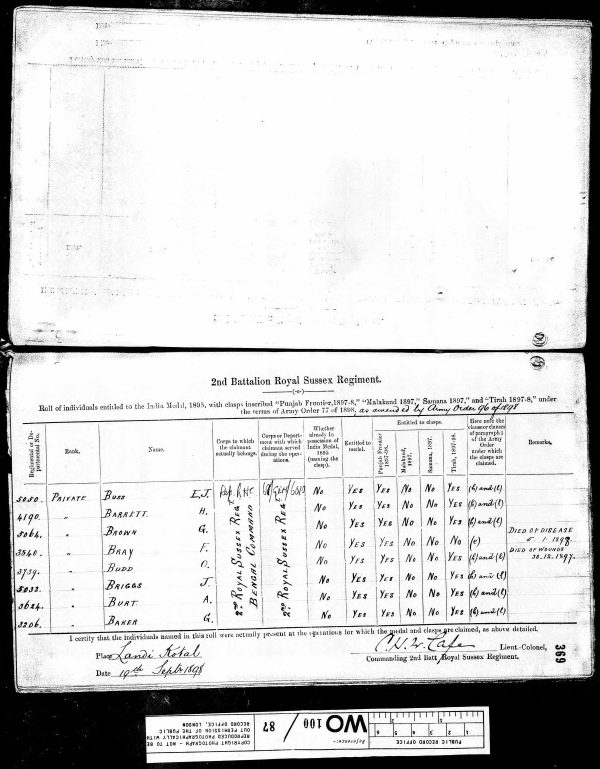 2nd Battalion Royal Sussex Regiment.
Roll of individuals entitled to the India Medal, 1895, with clasps inscribed "Punjab Frontier, 1897-8," "Malakand 1897," Samana 1897," and "Tirah 1897-8," under
the terms of Army Order 77 of 1898. as amended by Army Order 96 of 1898
Regimental or Departmental No. Rank. Name. Corps to which the claimant actually belongs. Corps or Department with which claimant served during the operations. Whether already in possession of India Medal, 1895 (naming the clasp). Entitled to medal. Entitled to clasps. Punjab Frontier 1897-98. Malakand, 1897. Samana, 1897. Tirah, 1897-98. Here note the clause or clauses of paragraph 1 of the Army Order under which the clasps are claimed. Remarks.
2nd Royal Sussex Regt Bengal Command
2nd Royal Sussex Reg
5050. Private Buss E.J. No Yes Yes No No Yes (b) and (l)
4190. " Barrett. H. No Yes Yes No No Yes (b) and (l)
5064. " Brown G. No Yes Yes No No Yes (b) and (l)
3840. " Bray F. No Yes Yes No No No (c) Died of Disease 5.1.1898
3739. " Budd O. No Yes Yes No No Yes (b) and (l) Died of Wounds 30.12.1897.
5033. " Briggs J. No Yes Yes No No Yes (b) and (l)
3624. " Burt A. No Yes Yes No No Yes (b) and (l)
3206. " Baker G. No Yes Yes No No Yes (b) and (l)
I certify that the individuals named in this roll were actually present at the operations for which the medal and clasps are claimed, as above detailed.
Place Landi Kotal
Lieut-Colonel,
Date 19th Septr 1898
Commanding 2nd Batt. Royal Sussex Regiment.
369
PUBLIC RECORD OFFICE
Reference:-
WO 100 / 87
COPYRIGHT PHOTOGRAPH - NOT TO BE
REPRODUCED PHOTOGRAPHICALLY WITH
OUT PERMISSION OF THE PUBLIC
RECORD OFFICE, LONDON